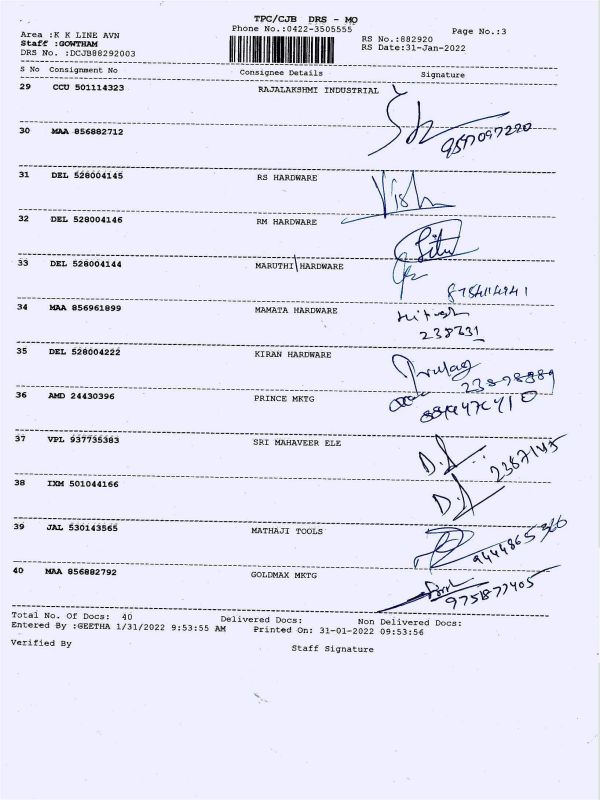 TPC/CJB DRS - MO
Area :K K LINE AVN Phone No.:0422-3505555 Page No.:3
Staff :GOWTHAM RS No.:882920
DRS No. :DCJB88292003 RS Date:31-Jan-2022
S No Consignment No Consignee Details Signature
29 CCU 501114323 RAJALAKSHMI INDUSTRIAL
30 MAA 856882712
31 DEL 528004145 RS HARDWARE
32 DEL 528004146 RM HARDWARE
33 DEL 528004144 MARUTHI HARDWARE
34 MAA 856961899 MAMATA HARDWARE
238231
35 DEL 528004222 KIRAN HARDWARE
36 AMD 24430396 PRINCE MKTG
37 VPL 937735383 SRI MAHAVEER ELE
2387145
38 IXM 501044166
39 JAL 530143565 MATHAJI TOOLS
40 MAA 856882792 GOLDMAX MKTG
9751877405
Total No. Of Docs: 40 Delivered Docs: Non Delivered Docs:
Entered By :GEETHA 1/31/2022 9:53:55 AM Printed On: 31-01-2022 09:53:56
Verified By Staff Signature